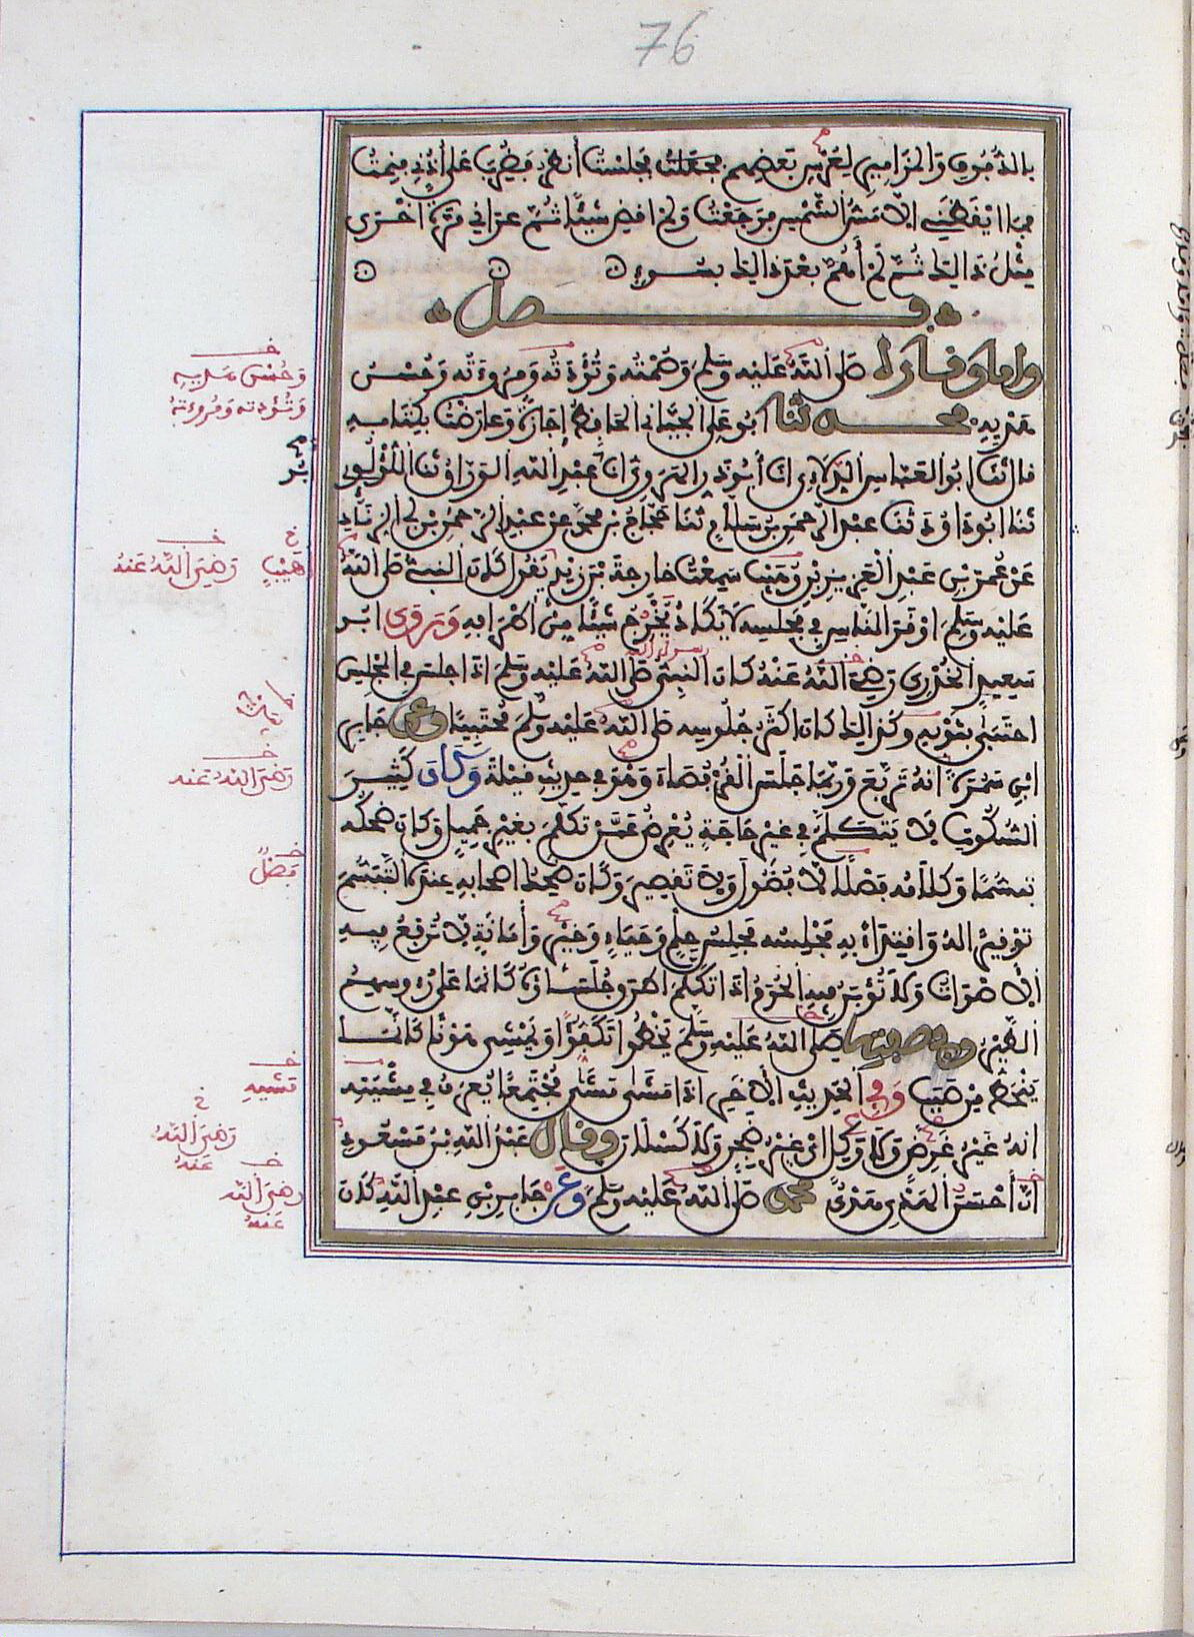 76
بالدُّفُوفِ وَالمَزَامِيرِ لِعُرْسِ بَعْضِهِم فَجَلَسْتُ أنظر فَضُرِبَ عَلَى أُذُنِي فَنِمْتُ
فما ايْقَظَنِي إلّا مَسُّ الشَّمْسِ فرَجَعْتُ وَلم اقضِ شَيْئًا ثُمَّ عَرَانِي مَرَّةً اخْرَى
مِثْلُ ذالكَ ثُمَّ لَمْ أَهُمَّ بعْدَ ذالكَ بسُوءٍ
فصل
واما وقاره صَلى اللَّهُ عَلَيْهِ وَسَلَّمَ وَصُمْتُه وَتُؤَدَتُهُ وَمُرُوءَتُه وَحُسْنُ
وَحُسْنُ سِيرِيهِ
وَتُؤدته وَمُرُوءته
هَدْيِهِ فحدثنا ابُو عَلِي الجَيَّانِي الحَافِظُ إجَازَةً وَعَارَضْتُ بكِتَابِهِ
قال ثنا ابُو العَبَّاسِ الدِّلَاءِي انا أبُو ذَرٍ الهَرَوِيُّ انا أبُو عَبْدِ اللهِ الوَرَّاقُ ثنا اللُّؤْلُؤِى
ثنَا ابُو دَاوُدَ ثنا عبْدُ الرَّحمَنِ بن سَلَّامٍ ثنَا حَجَّاجُ بنُ محمدٍ عن عبْدِ الرَّحمَنِ بن ابى الزِّنَادِ
عَنْ عُمَرَ بْنِ عَبْدِ العَزِيزِ بْنِ وُهَيْبٍ سَمِعْتُ خارِجَةَ بْنَ زَيْدٍ يَقُولُ كَانَ النبىُّ صَلى اللهُ
أهَيْبٍ رَضِيَ اللَّهُ عَنهُ
عَلَيْهِ وَسَلَّمَ اوْقَرَ النَّاسِ فِى مَجْلِسِهِ لا يَكَادُ يُخْرِجُ شيْئًا مِنْ اطْرَافِهِ وَرَوى ابُو
سَعِيدٍ الخُدْرِى رَضِيَ اللَّهُ عَنْهُ كَانَ النبِىُّ صَلى اللهُ عَلَيْهِ وَسَلَّمَ اذَا جلسَ فى المجْلِسِ
احتَبَى بيَدَيْهِ وكَذالكَ كَانَ اكثَرُ جُلُوسِهِ صَلى اللهُ عَلَيْهِ وَسَلَّمَ مُحْتَبِيًا وعن جَابِرِ
ابْنِ سَمُرَةَ انهُ تَرَبَّعَ وَرُبَّمَا جَلَسَ القُرْفُصَاءَ وَهُوَ فى حدِيثِ قيْلَةَ وَكَانَ كَثِيرَ
رَضِيَ اللهُ عَنه
السُّكُوتِ لا يَتكَلَّمُ فِى غيْرِ حَاجَةٍ يُعْرِضُ عَمَّنْ تكَلَّمَ بغيْرِ جَمِيلٍ وَكَانَ ضحِكُه
تبَسُّمًا وَكلامُه فَصْلًا لا فُضُولَ وَلا تَقصِيرَ وَكَانَ ضَحِكُ اصحَابِهِ عِندَهُ التَّبَسُّمَ
فَصْلٌ
تَوْقِيرًا لهُ وَاقتِدَاءً بِهِ مَجْلِسُه مَجْلِسُ حِلْمٍ وَحَيَاءٍ وَخَيْرٍ وَأمَانَةٍ لا تُرْفَعُ فِيهِ
الأَصْوَاتُ وَلا تُؤْبَنُ فِيهِ الحُرَمُ اذَا تَكَلَّمَ اطرَقَ جُلَسَاؤُهُ كَأنَّمَا عَلَى رُءُوسِهِمُ
الطَّيْرُ وفى صفته صَلى اللهُ عَلَيْهِ وَسَلَّمَ يَخْطُوا تَكَفُّؤًا وَيَمْشِى هَوْنًا كَأنَّمَا
يَنْحَطُّ مِنْ صَبَبٍ وَفِى الحَدِيثِ الآخَرِ اذَا مَشَى مَشَى مُجْتَمِعًا يُعْرَفُ فِى مِشْيَتِهِ
مَشيهِ
انهُ غَيْرُ غَرِضٍ وَلَا وَكِلٍ اىْ غيْرُ ضَجِرٍ وَلا كَسْلَانَ وقال عَبْدُ اللهِ بْنُ مَسْعُودٍ
رَضِيَ اللَّهُ عَنْهُ
انَّ أحْسَنَ الهَدْىِ هَدْىُ محمد صَلى اللَّهُ عَلَيْهِ وَسَلَّمَ وَعَنْ جَابِرِ بْنِ عبْدِ اللهِ كَانَ
رَضِيَ اللَّهُ عَنْهُ